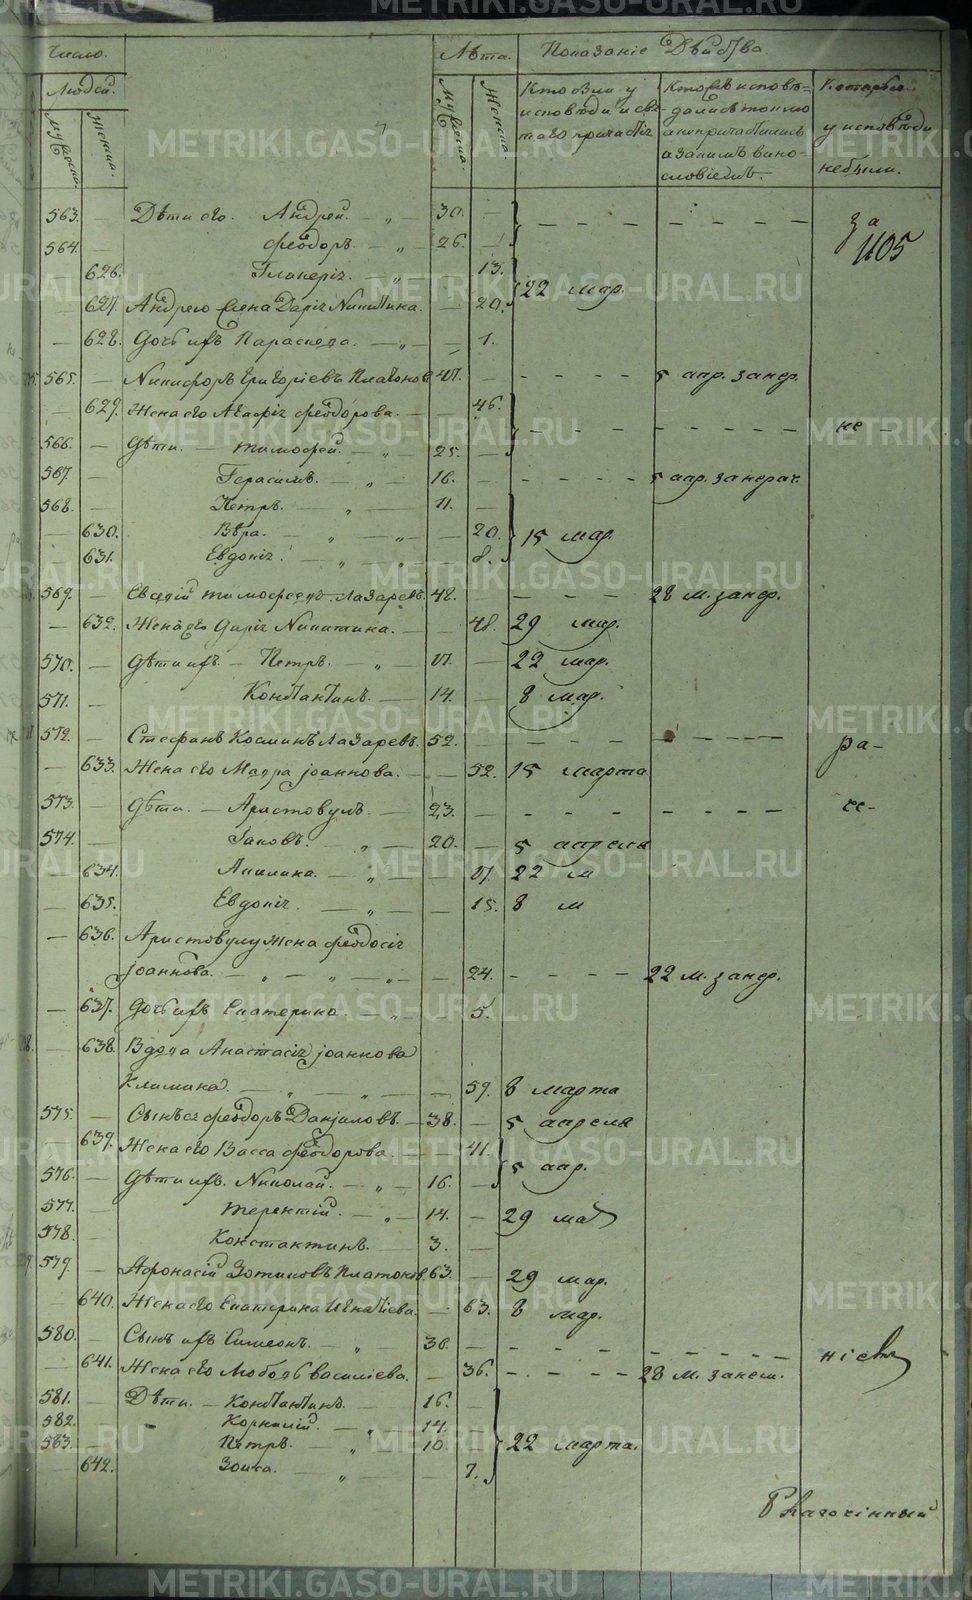 Число. Лѣта. Показаніе Дѣйства.
Людей.
Мужеска. Женска. Мужеска. Женска.
Кто были у исповѣди и святаго причастія
Кто исповѣдались токмо а не причастились и за какимъ винословіемъ.
Которые у исповѣди не были.
563. — Дѣти его. Андрей. — „ — 30. — за
564. — Феодоръ. — „ 26. — 1105
— 626. Гликерія. „ — 13.
— 627. Андрею жена Дарія Никитина. — 20. 22 мар.
— 628. Дочь ихъ Параскева. — „ — 1.
565. — Никифоръ Григоріевъ Платонов 47. — 5 апр. занер.
— 629. Жена его Агафія Феодорова. — 46.
566. — Дѣти. — Тимофей. — „ — 25. — не —
567. — Герасимъ. — „ — 16. — 5 апр. занерач.
568. — Петръ. — „ — 11. —
— 630. Вѣра. — „ — „ — 20. 15 мар.
— 631. Евдокія. — „ — „ — 8.
569. — Тимофеевъ Лазаревъ. 48. — 28 м. занер.
— 632. Жена его Дарія Никитина. — 48. 29 мар.
570. — Дѣти ихъ. — Петръ. — „ — 17. — 22 мар.
571. — Константинъ. — 14. — 8 мар.
572. — Стефанъ Косминъ Лазаревъ. 52. — ра-
— 633. Жена его Мавра Іоаннова. — 52. 15 марта
573. — Дѣти. — Аристовулъ. — 23. —
574. — Іаковъ. — „ — 20. — 5 апреля
— 634. Акилина. — „ — 17. 22 м
— 635. Евдокія. — „ — 15. 8 м
— 636. Аристовулу жена Феодосія
Іоаннова. — „ — „ — „ — 24. 22 м. занер.
— 637. Дочь ихъ Екатерина. — „ — 5.
— 638. Вдова Анастасія Іоаннова
Климина. — „ — „ — 59. 8 марта
575. — Сынъ ея Феодоръ Даніиловъ. — 38. — 5 апреля
— 639. Жена его Васса Феодорова. — 41.
576. — Дѣти ихъ. Николай. — „ — 16. — 5 апр.
577. — Терентій. — „ — 14. — 29 мар
578. — Константинъ. — 3. —
579. — Афонасій Зотиковъ Платонов. 63. — 29 мар.
— 640. Жена его Екатерина Игнатіева. — 63. 8 мар.
580. — Сынъ ихъ Симеонъ. — „ — 36. — ніемъ
— 641. Жена его Любовь Василіева. — 36. 28 м. занер.
581. — Дѣти. — Константинъ. — 16. —
582. — Корнилій. — „ — 14.
583. — Петръ. — „ — 10. — 22 марта.
— 642. Зоика. — „ — 7.
Благочинный
METRIKI.GASO-URAL.RU